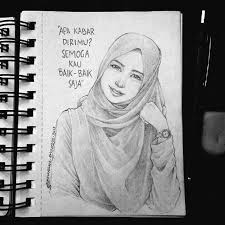 "APA KABAR
DIRIMU?
SEMOGA
KAU
BAIK-BAIK
SAJA"